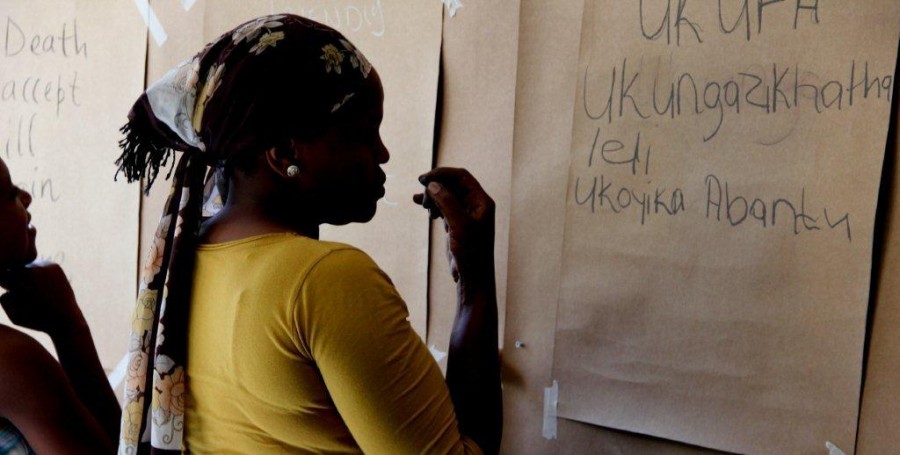 Death
accept
ill
in
UKUFA
Ukungazikhatha
leli
Ukoyika Abantu